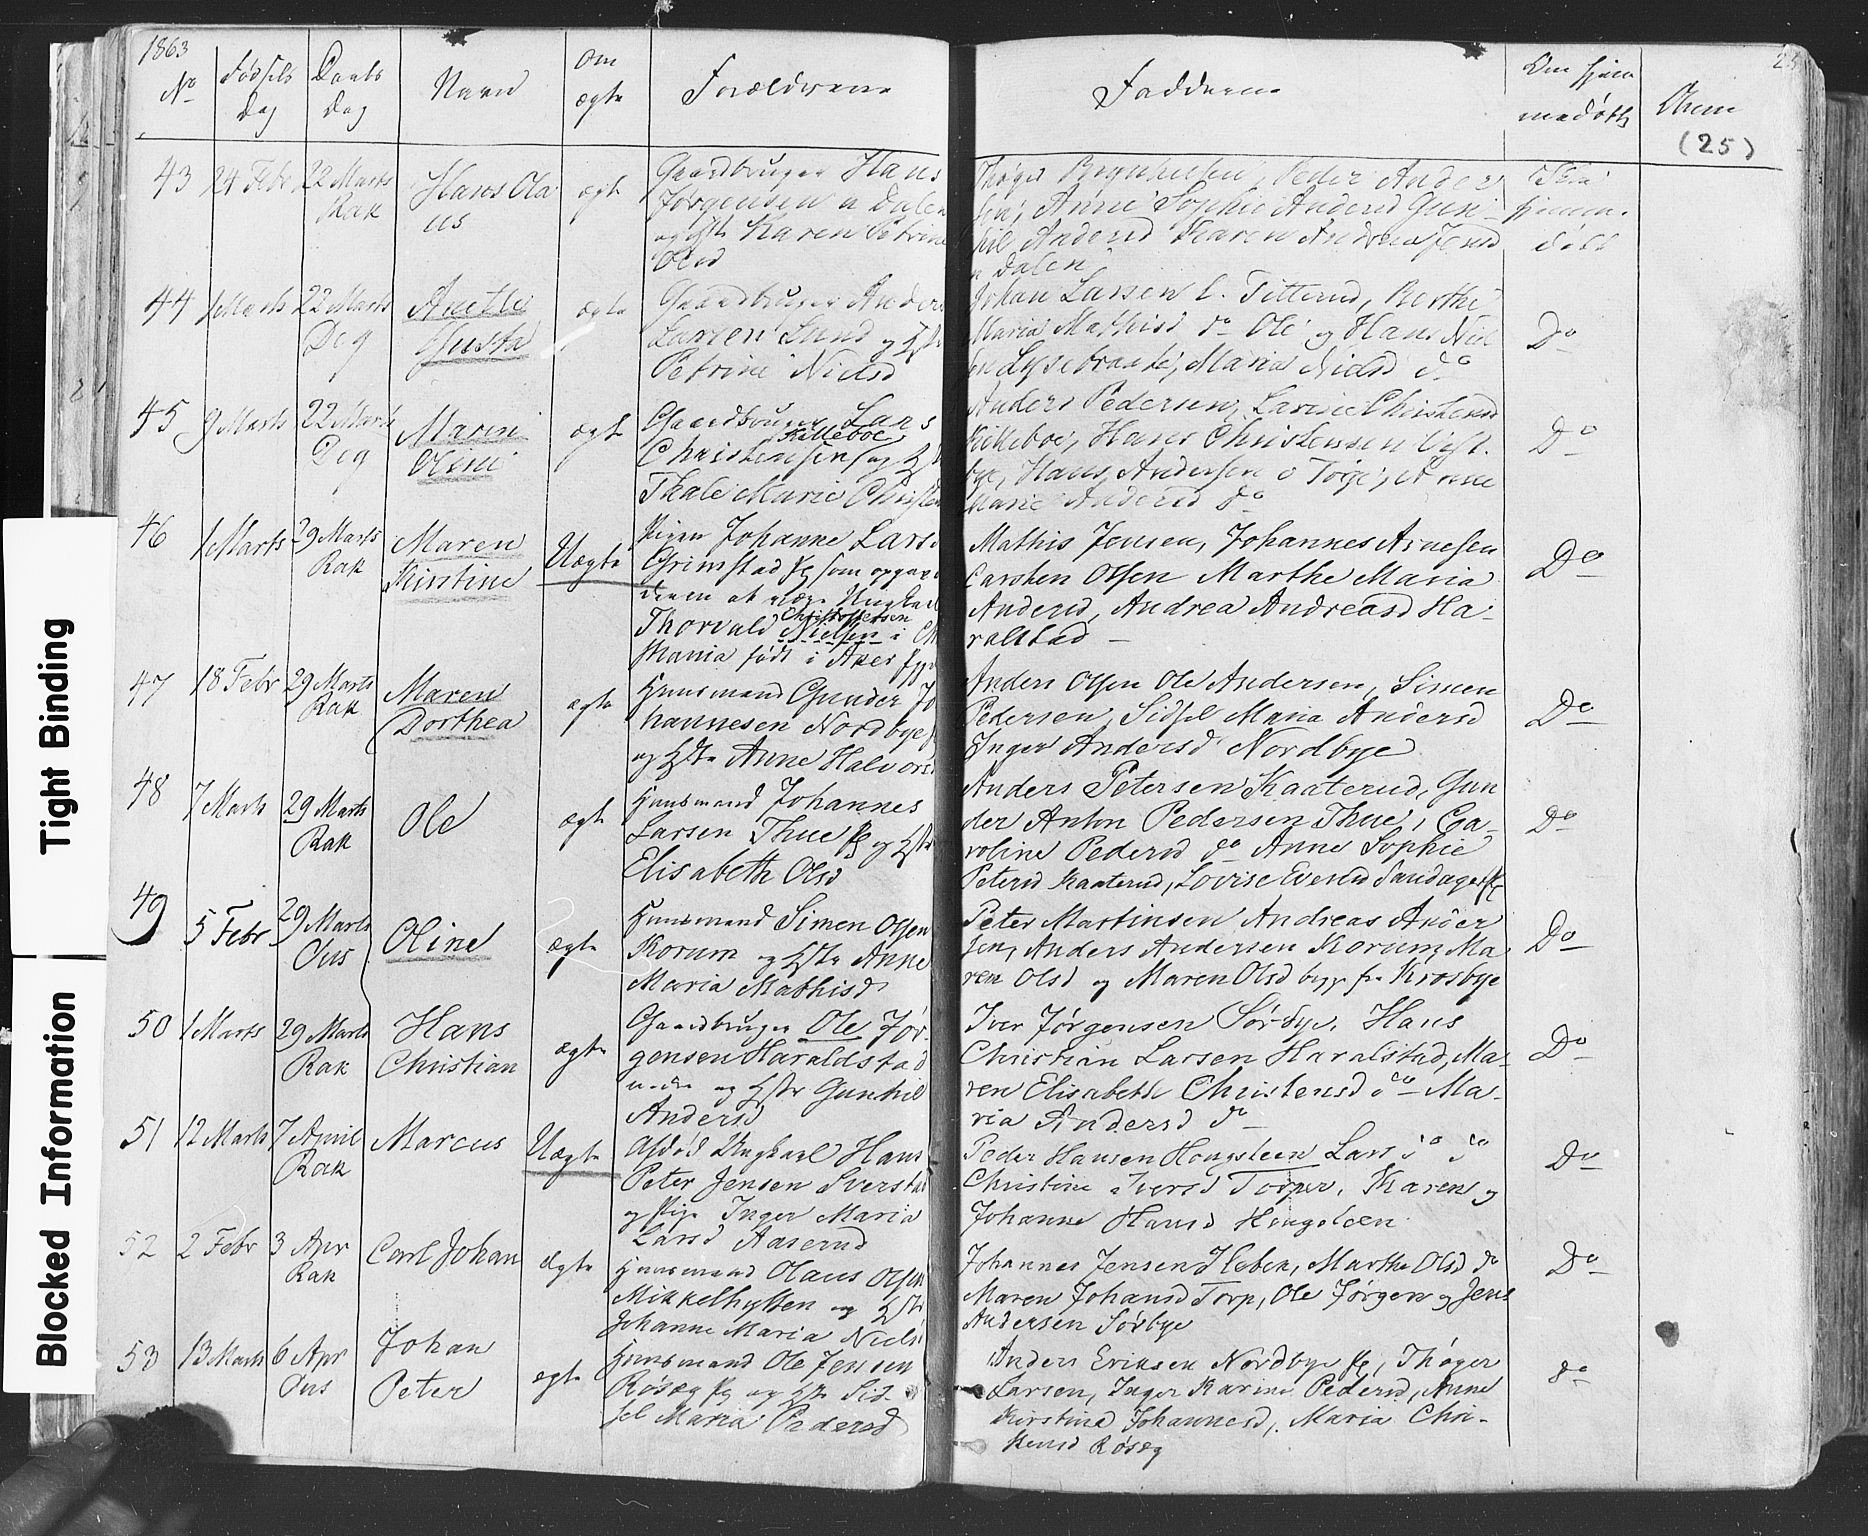 1863
No
Fødsels Dag
Daabs Dag
Navn
Om ægte
Forældrene
Fadderne
Om hjemmedøbt
Anm
25
(25)
43 24 Febr 22 Marts Rak Hans Olaus ægte
Gaardbruger Hans
Jørgensen n Dalen
og Hstr Karen Petrine
Olsd
Peder Anders
sen, Anne Sophie Andersd Gun-
hil Andersd Karen Andrea Jensd
n Dalen
hjemmedøbt
44 1 Marts 22 Marts Dog Anette Gusta ægte
Gaardbruger Anders
Larsen Lund og Hstr
Petrine Nielsd
Johan Larsen l. Titterud, Berthe
Maria Mathisd do Ole og Hans Niel
sen Lysebraate, Maria Nielsd do
Do
45 9 Marts 22 Marts Dog Maren Oline ægte
Gaardbruger Lars
Killeboe
Christensen og Hstr
Thale Marie Christensd
Anders Pedersen, Lavine Christensd
Kikkeboe, Hans Christensen
bye, Hans Andersen o Toge, Anne
Marie Andersd do
Do
46 1 Marts 29 Marts Rak Maren Kirstine Uægte
Pigen Johanne Larsd
Grimstad som opgav
Ungkarl
Christoffersen
Thorvald Nielsen i Ch
stiania født i Aker
Mathis Jensen, Johannes Arnesen
Carsten Olsen Marthe Maria
Andersd, Andrea Andreasd Ha-
ralstad
Do
47 18 Febr 29 Marts Rak Maren Dorthea ægte
Huusmand Gunder Jo
hannesen Nordbye
og Hstr Anne Halvorsd
Anders Olsen Ole Andersen, Simen
Pedersen, Sidsel Maria Andersd
Inger Andersd Nordbye
Do
48 7 Marts 29 Marts Rak Ole ægte
Huusmand Johannes
Larsen Thue og Hstr
Elisabeth Olsd
Anders Petersen Kaaterud, Gun
der Anton Pedersen Thue, Ca-
roline Pedersd do Anne Sophie
Petersd Kaaterud, Lovise Evensd Sandager
Do
49 5 Febr 29 Marts Ous Oline ægte
Huusmand Simen Olsen
Korum og Hstr Anne
Maria Mathisd
Peter Martinsen Andreas Ander
sen, Anders Andersen Korum, Ma
ren Olsd og Maren Olsd begge fra Krosbye
Do
50 1 Marts 29 Marts Rak Hans Christian ægte
Gaardbruger Ole Jør-
gensen Haraldstad
nedre og Hstr Gunhil
Andersd
Iver Jørgensen Sørbye, Hans
Christian Larsen Haralstad, Ma-
ren Elisabeth Christensd do Ma-
ria Andersd do
Do
51 12 Marts 7 April Rak Marcus Uægte
Afdød Ungkarl Hans
Peter Jensen Sverstad
og Pige Inger Maria
Larsd Aaserud
Peder Hansen Hougsteen Lars do do
Christine Iversd Torper, Karen og
Johanne Hansd Hougsteen
Do
52 2 Febr 3 Apr Rak Carl Johan ægte
Huusmand Olaus Olsen
Mikkelhytten og Hstr
Johanne Maria Nielsd
Johannes Jensen Ilebek, Marthe Olsd do
Maren Johansd Torp, Ole Jørgen og Jens
Andersen Sørbye
Do
53 13 Marts 6 Apr Ous Johan Peter ægte
Huusmand Ole Jensen
Røsæg og Hstr Sid-
sel Maria Pedersd
Anders Eriksen Nordbye, Thøger
Larsen, Inger Karine Pedersd, Anne
Kirstine Johannesd, Maria Chri-
stensd Røsæg
do
Tight Binding
Blocked Information